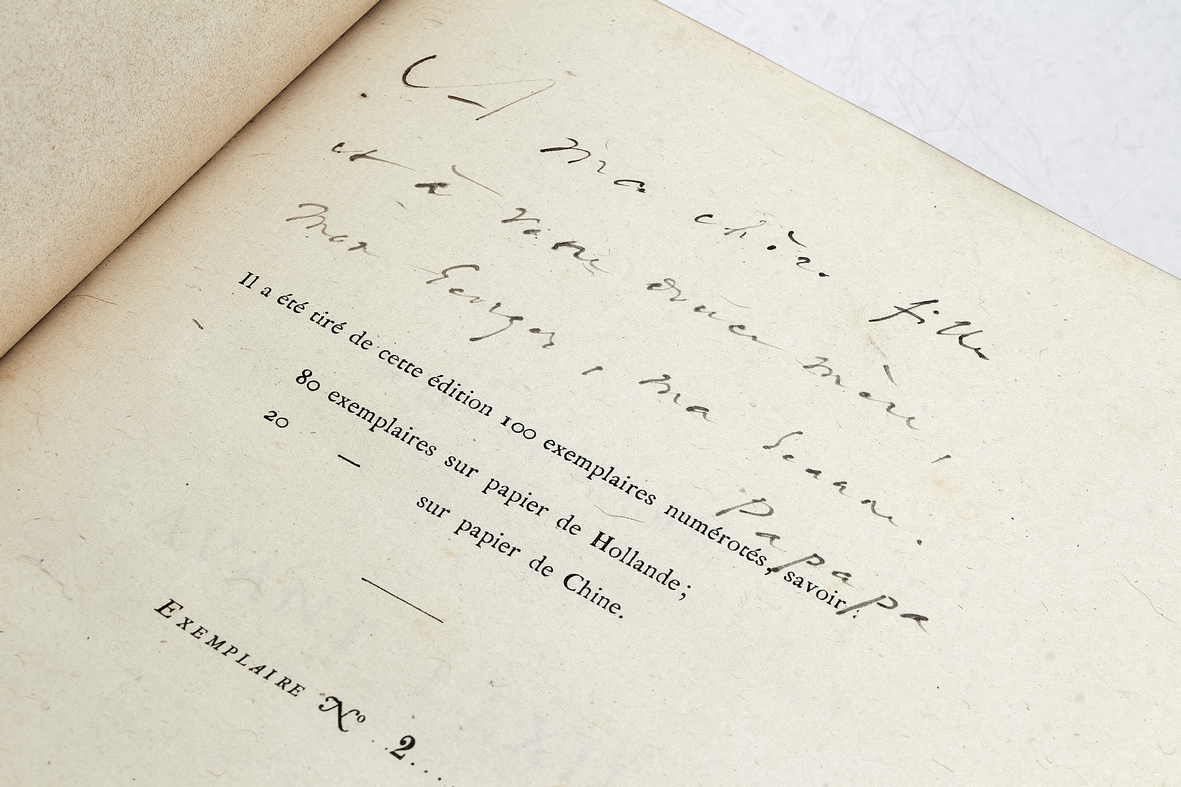 A ma chère fille
et à votre douce mère,
mon Georges, ma Jeanne.
Papapa
Il a été tiré de cette édition 100 exemplaires numérotés, savoir :
80 exemplaires sur papier de Hollande ;
20 — sur papier de Chine.
EXEMPLAIRE Nº 2...